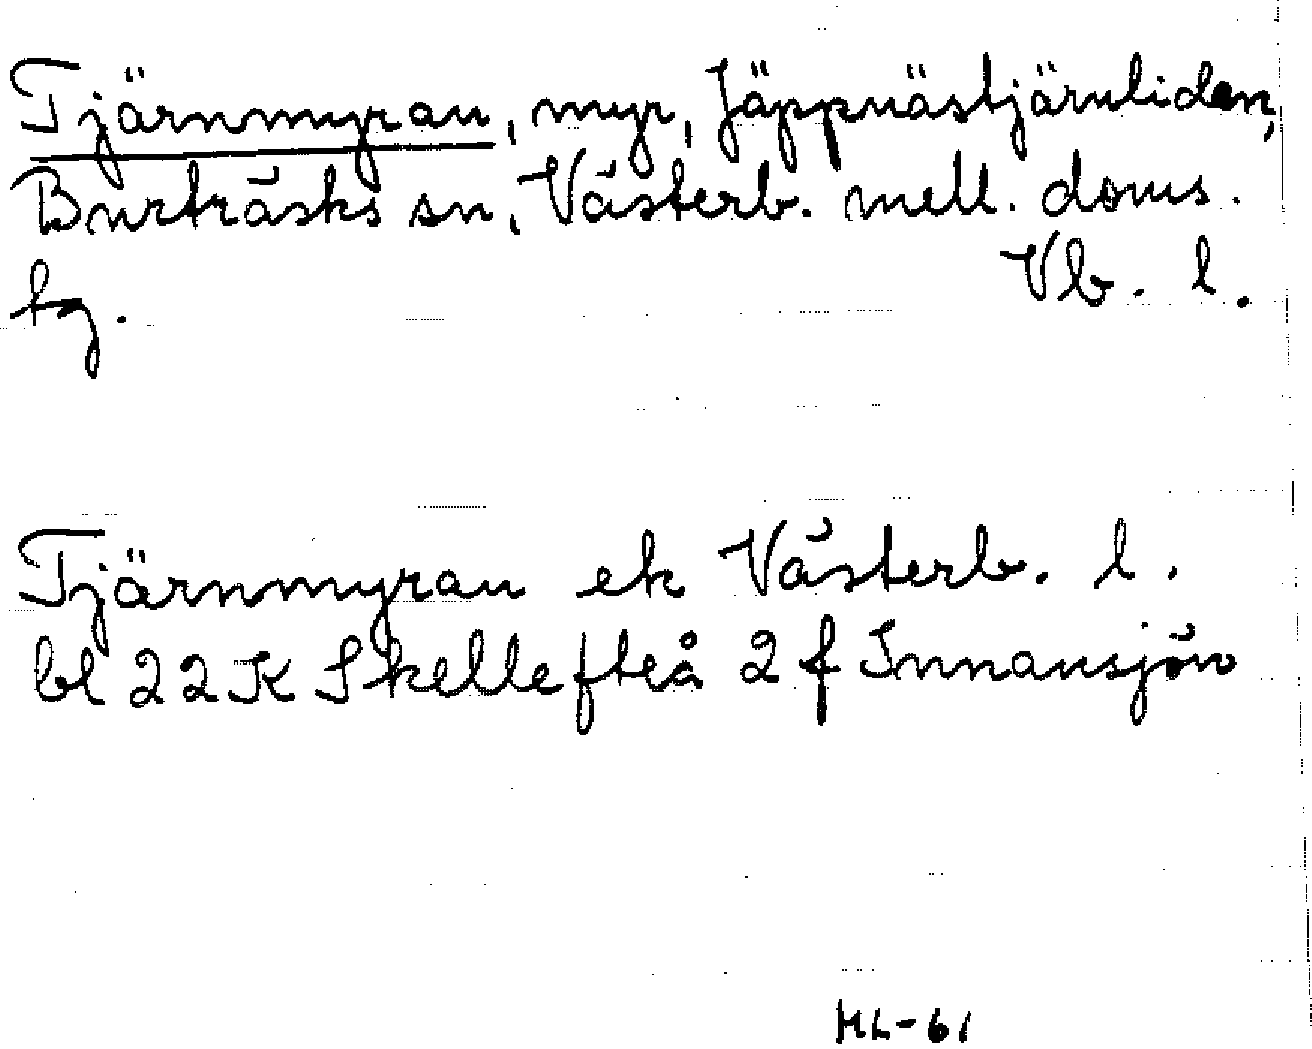 Tjärnmyran, myr, Jäppnästjärnliden,
Burträsks sn, Västerb. mell. doms.
tg. Vb. l.
Tjärnmyran ek Västerb. l.
bl 22K Skellefteå 2f Innansjön
HL-61